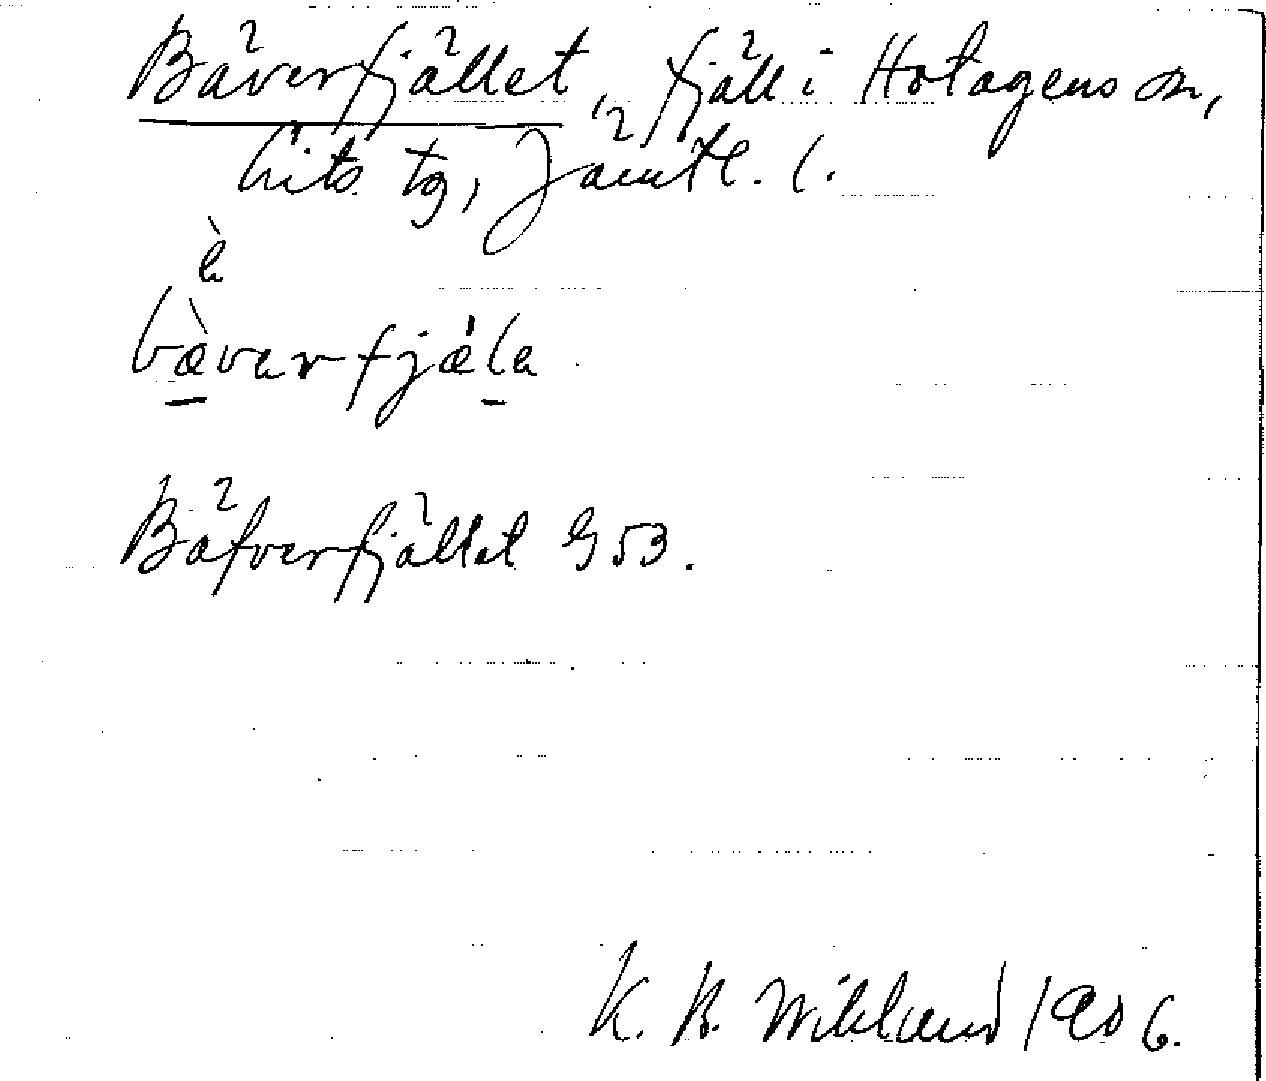 Bäverfjället, fjäll i Hotagens sn,
Lits tg, Jämtl. l.
è
bæ̀verfjæ̍la
Bäfverfjället G53.
K. B. Wiklund 1906.